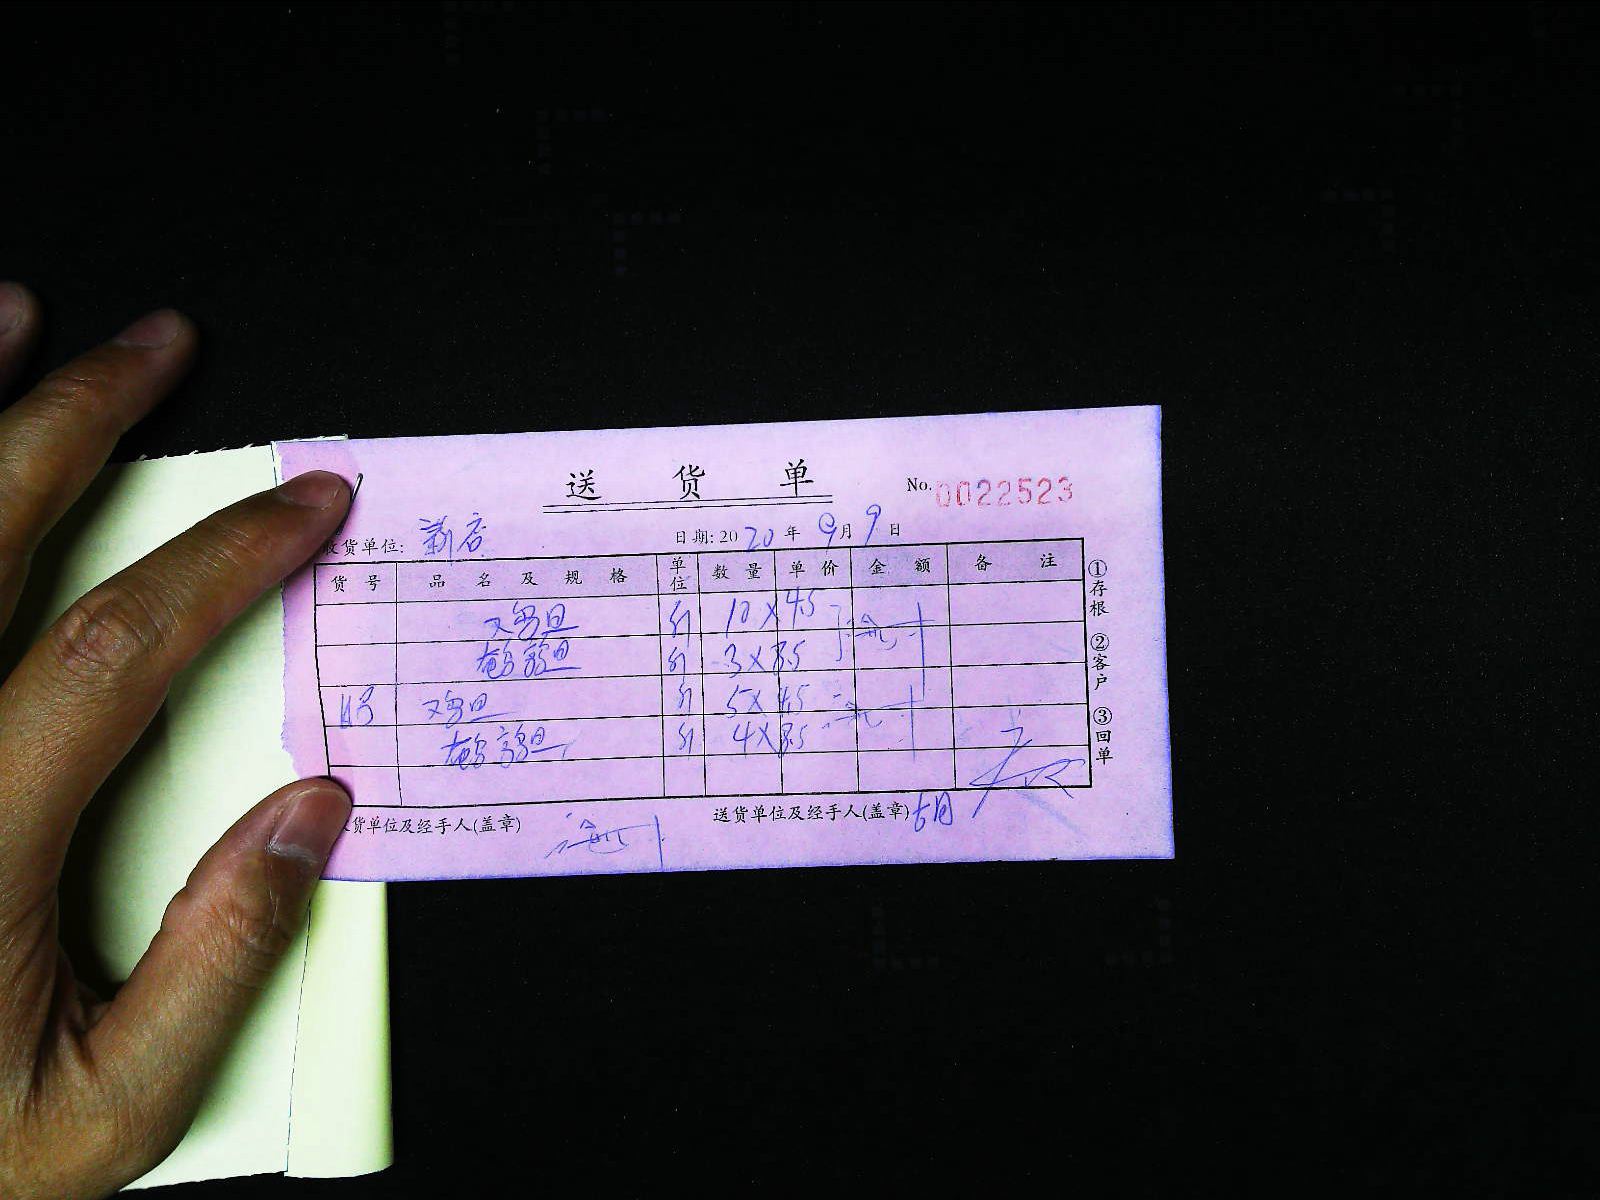 送 货 单
No. 0022523
收货单位: 新店 日期: 2020 年 9月 9日
货 号 品 名 及 规 格 单位 数 量 单 价 金 额 备 注
又鸟旦 斤 10 X 4.5
鹌鹑旦 斤 3 X 8.5
又鸟旦 斤 5 X 4.5
鹌鹑旦 斤 4 X 8.5
①存根 ②客户 ③回单
收货单位及经手人(盖章) 送货单位及经手人(盖章)